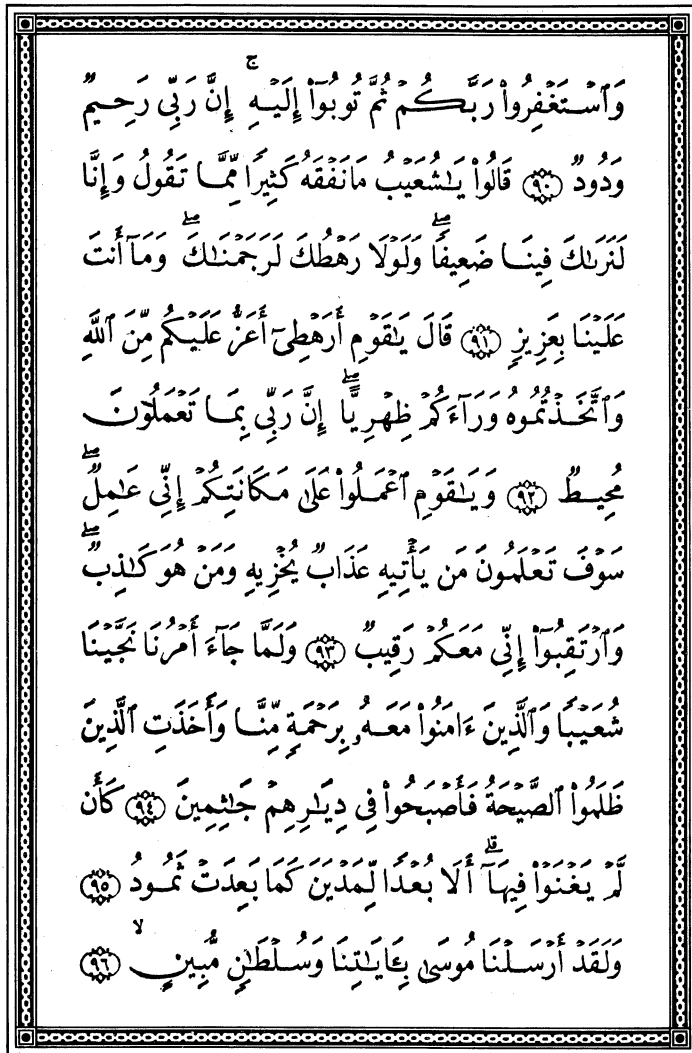 وَٱسْتَغْفِرُوا۟ رَبَّكُمْ ثُمَّ تُوبُوٓا۟ إِلَيْهِ ۚ إِنَّ رَبِّى رَحِيمٌ
وَدُودٌ ﴿٩٠﴾ قَالُوا۟ يَـٰشُعَيْبُ مَا نَفْقَهُ كَثِيرًا مِّمَّا تَقُولُ وَإِنَّا
لَنَرَىٰكَ فِينَا ضَعِيفًا ۖ وَلَوْلَا رَهْطُكَ لَرَجَمْنَـٰكَ ۖ وَمَآ أَنتَ
عَلَيْنَا بِعَزِيزٍ ﴿٩١﴾ قَالَ يَـٰقَوْمِ أَرَهْطِىٓ أَعَزُّ عَلَيْكُم مِّنَ ٱللَّهِ
وَٱتَّخَذْتُمُوهُ وَرَآءَكُمْ ظِهْرِيًّا ۖ إِنَّ رَبِّى بِمَا تَعْمَلُونَ
مُحِيطٌ ﴿٩٢﴾ وَيَـٰقَوْمِ ٱعْمَلُوا۟ عَلَىٰ مَكَانَتِكُمْ إِنِّى عَـٰمِلٌ ۖ
سَوْفَ تَعْلَمُونَ مَن يَأْتِيهِ عَذَابٌ يُخْزِيهِ وَمَنْ هُوَ كَـٰذِبٌ ۖ
وَٱرْتَقِبُوٓا۟ إِنِّى مَعَكُمْ رَقِيبٌ ﴿٩٣﴾ وَلَمَّا جَآءَ أَمْرُنَا نَجَّيْنَا
شُعَيْبًا وَٱلَّذِينَ ءَامَنُوا۟ مَعَهُۥ بِرَحْمَةٍ مِّنَّا وَأَخَذَتِ ٱلَّذِينَ
ظَلَمُوا۟ ٱلصَّيْحَةُ فَأَصْبَحُوا۟ فِى دِيَـٰرِهِمْ جَـٰثِمِينَ ﴿٩٤﴾ كَأَن
لَّمْ يَغْنَوْا۟ فِيهَآ ۗ أَلَا بُعْدًا لِّمَدْيَنَ كَمَا بَعِدَتْ ثَمُودُ ﴿٩٥﴾
وَلَقَدْ أَرْسَلْنَا مُوسَىٰ بِـَٔايَـٰتِنَا وَسُلْطَـٰنٍ مُّبِينٍ ۙ ﴿٩٦﴾